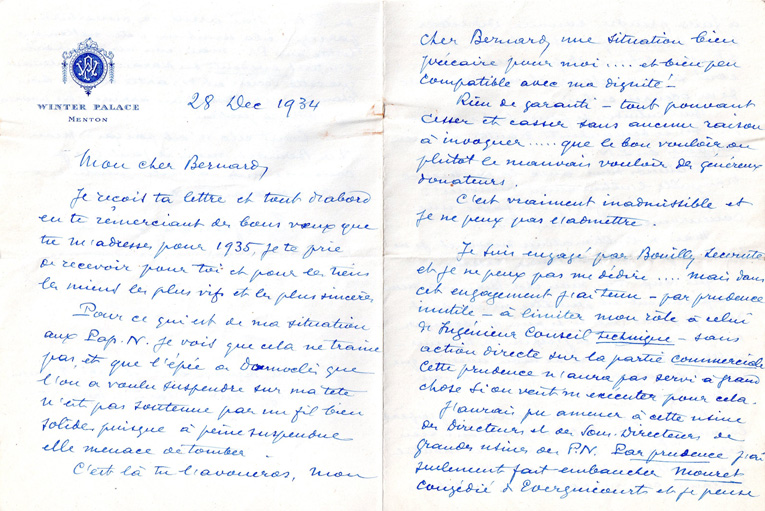 WINTER PALACE
MENTON
28 Dec 1934
Mon cher Bernard,
Je reçois ta lettre et tout d'abord
en te remerciant des bons vœux que
tu m'adresses pour 1935, je te prie
de recevoir pour toi et pour les tiens
les miens les plus vifs et les plus sincères
Pour ce qui est de ma situation
aux Pap. N. je vois que cela ne traine
pas, et que l'épée de Damoclès que
l'on a voulu suspendre sur ma tete
n'est pas soutenue par un fil bien
solide, puisque à peine suspendue
elle menace de tomber.
C'est là tu l'avoueras, mon
cher Bernard, une situation bien
précaire pour moi .... et bien peu
compatible avec ma dignité! -
Rien de garanti - tout pouvant
cesser et casser sans aucune raison
à invoquer ..... que le bon vouloir ou
plutôt le mauvais vouloir des généreux
donateurs.
C'est vraiment inadmissible et
je ne peux pas l'admettre.
Je suis engagé par Bouilly
et je ne peux pas me dédire .... mais dans
cet engagement j'ai tenu - par prudence
inutile - à limiter mon rôle à celui
de Ingénieur Conseil technique - sans
action directe sur la partie commerciale
Cette prudence n'aura pas servi à grand
chose si on veut m'executer pour cela.
J'aurais pu amener à cette usine
des Directeurs et des Sous-Directeurs de
grandes usines des P.N. Par prudence j'ai
seulement fait embaucher Mouret
congédié d'Evergnicourt et je pense